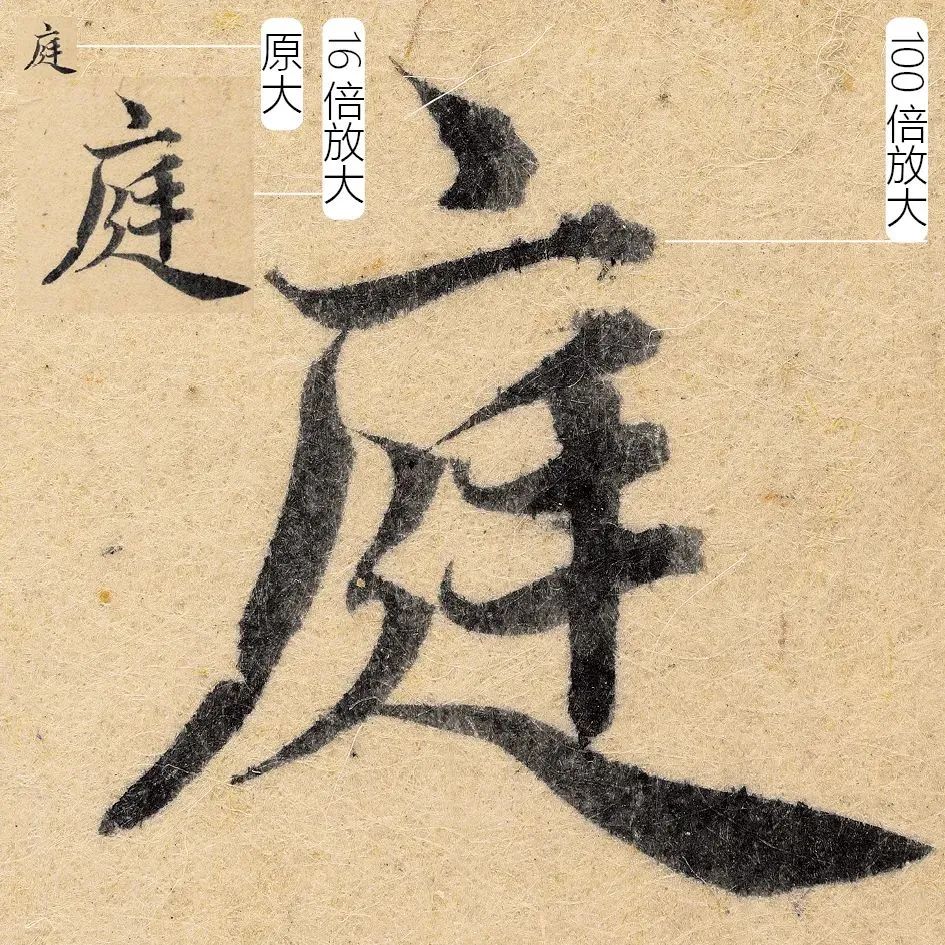 庭
原大
庭
16倍放大
庭
100倍放大